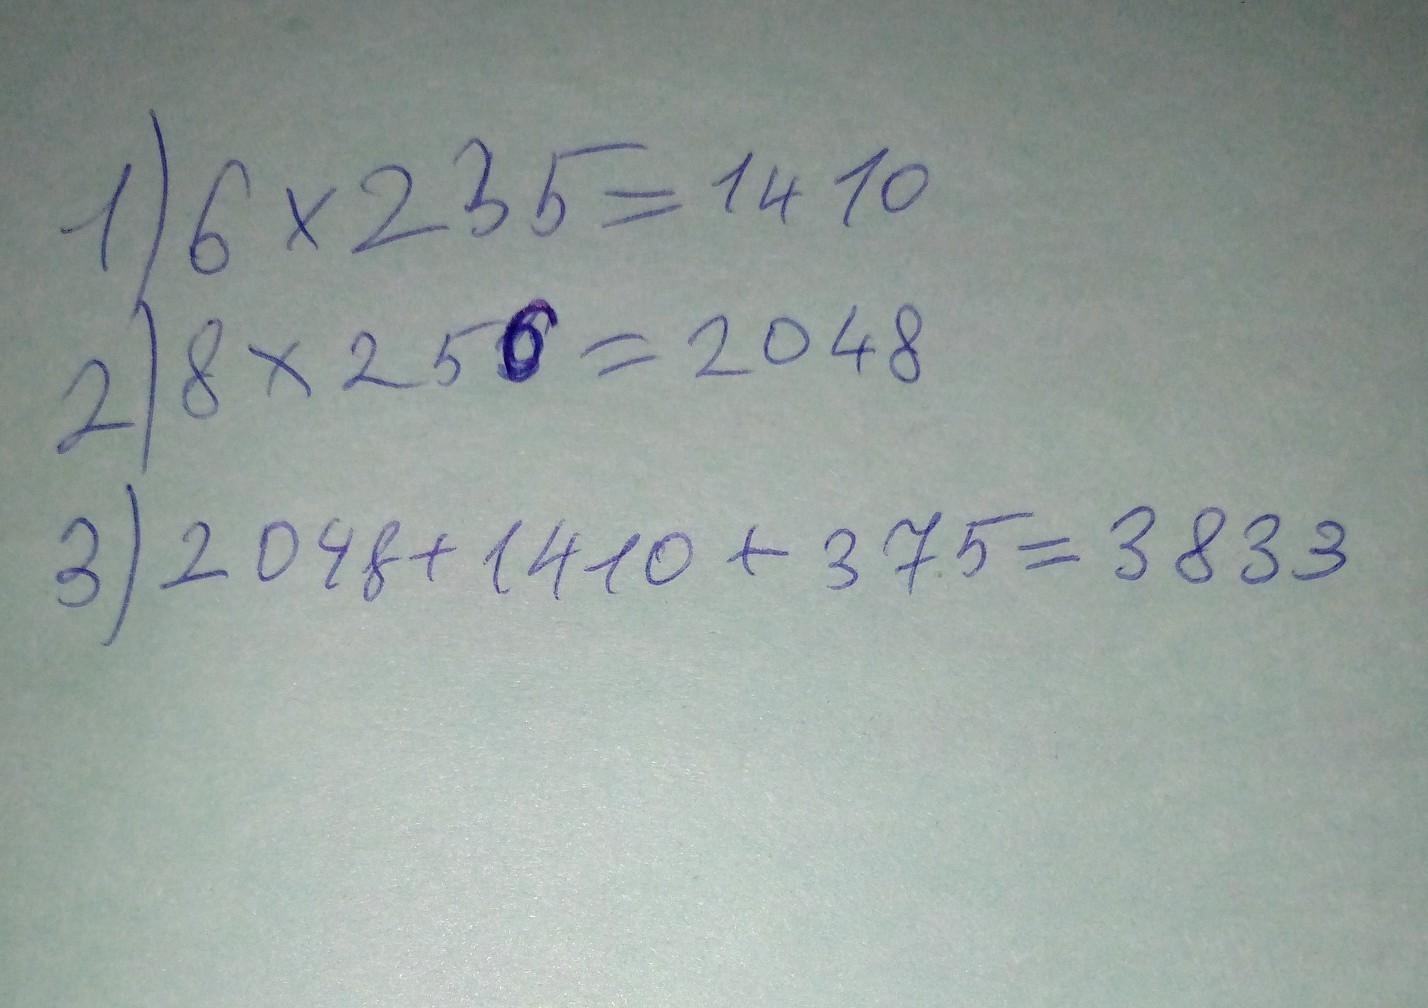 1) 6 x 235 = 1410
2) 8 x 256 = 2048
3) 2048 + 1410 + 375 = 3833